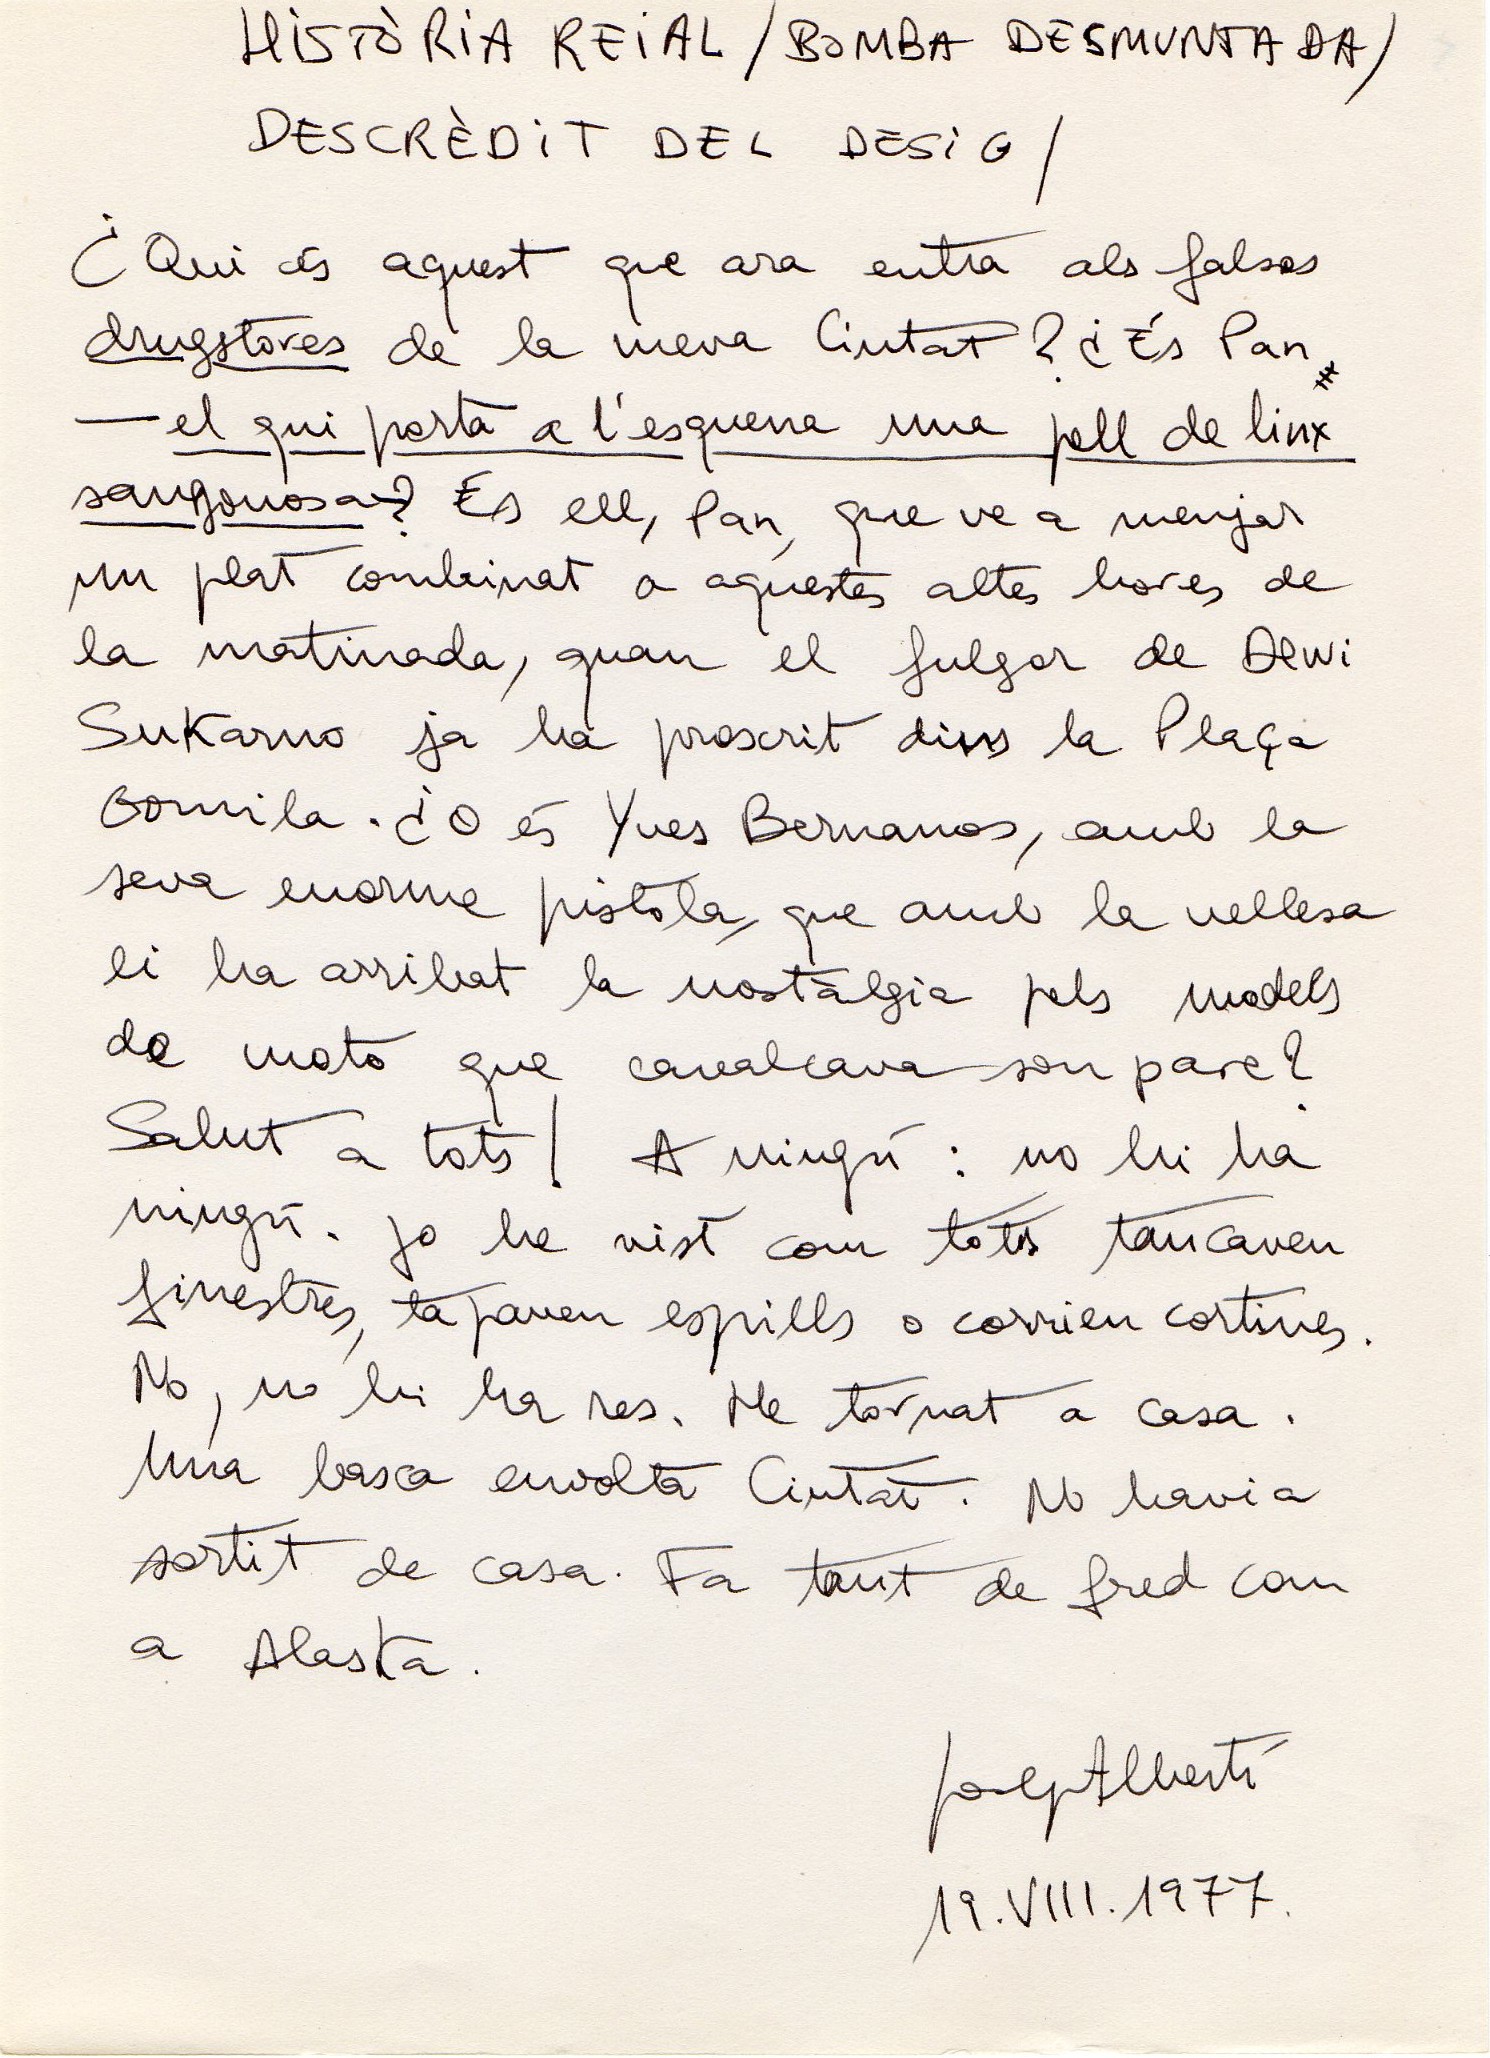 HISTÒRIA REIAL / BOMBA DESMUNTADA /
DESCRÈDIT DEL DESIG /
¿Qui és aquest que ara entra als falsos
drugstores de la meva Ciutat? ¿És Pan
—el qui porta a l'esquena una pell de linx
sangonosa—? És ell, Pan, que ve a menjar
un plat combinat a aquestes altes hores de
la matinada, quan el fulgor de Dewi
Sukarno ja ha proscrit dins la Plaça
Gomila. ¿O és Yves Bernanos, amb la
seva enorme pistola, que amb la vellesa
li ha arribat la nostàlgia pels models
de moto que cavalcava son pare?
Salut a tots! A ningú: no hi ha
ningú. Jo he vist com tots tancaven
finestres, tapaven espills o corrien cortines.
No, no hi ha res. He tornat a casa.
Una basca envolta Ciutat. No havia
sortit de casa. Fa tant de fred com
a Alaska.
Josep Albertí
19.VIII.1977.